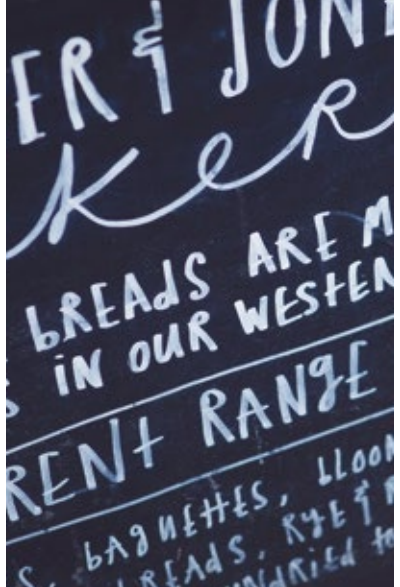 ER & JONE
KER
BREADS ARE M
S IN OUR WESTER
RENT RANGE
S, BAGUETTES, BLOOM
READS, RYE &
NDRIED to